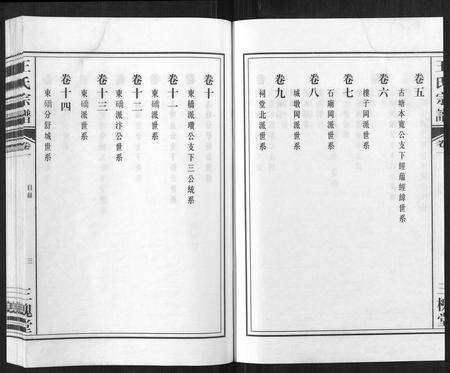 王氏宗譜
卷一
三槐堂
卷五
古塘本寬公支下經蘊經緯世系
卷六
樓子岡派世系
卷七
石廟岡派世系
卷八
城墩岡派世系
卷九
祠堂北派世系
卷十
東橋派瓚公支下三公統系
卷十一
東橋派世系
卷十二
東橋派汴公世系
卷十三
東橋派世系
卷十四
東橋分舒城世系
王氏宗譜
卷一
目錄
三
三槐堂